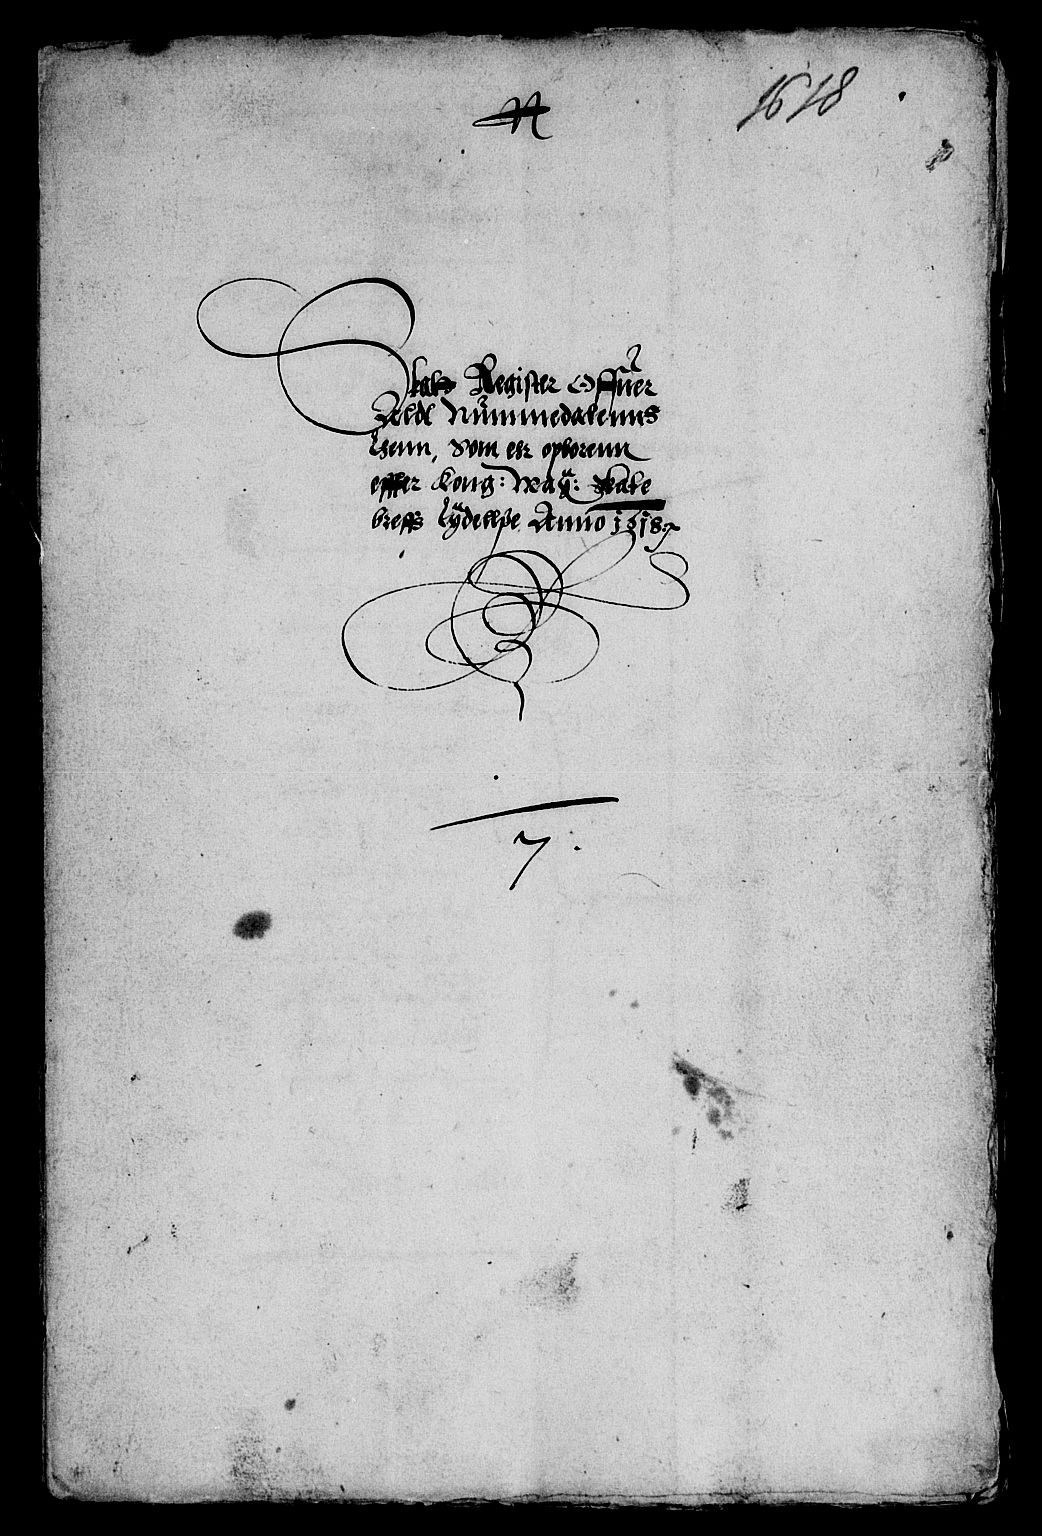 N
1618
Skatt Register Offuer
Aldl Nummedalenns
lhenn, Som er opborenn
epther Kong: May: Skate
breffs lydellße Anno 1618
7.